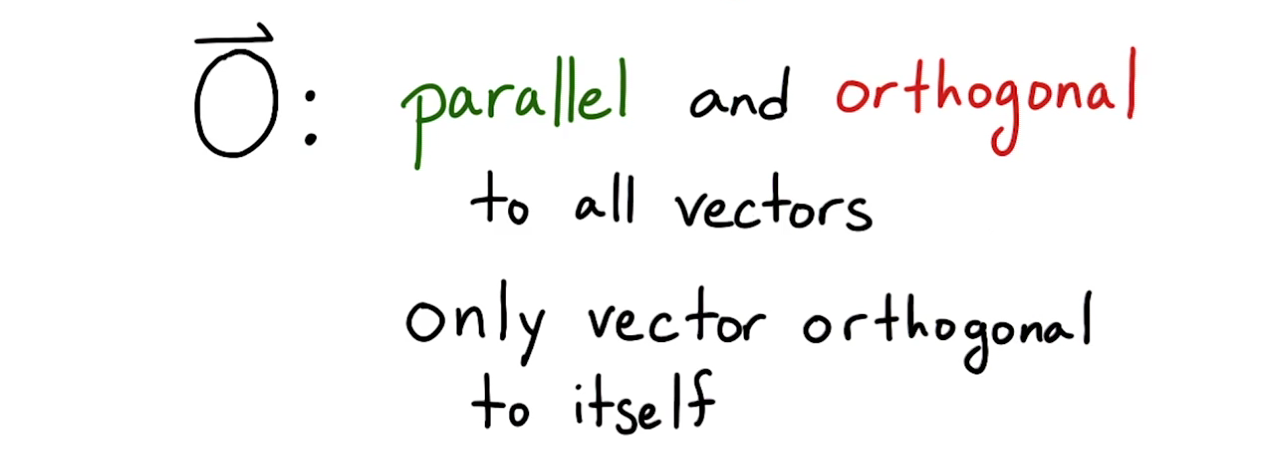 0⃗: parallel and orthogonal
to all vectors
only vector orthogonal
to itself